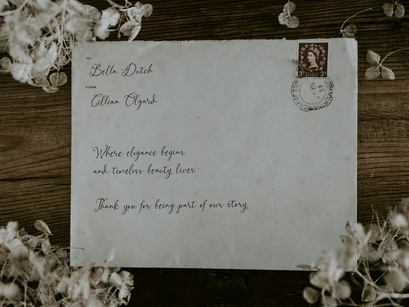 TO
Bella Dutch
FORM
Cillian Olgard
Where elegance begins,
and timeless beauty lives.
Thank you for being part of our story.